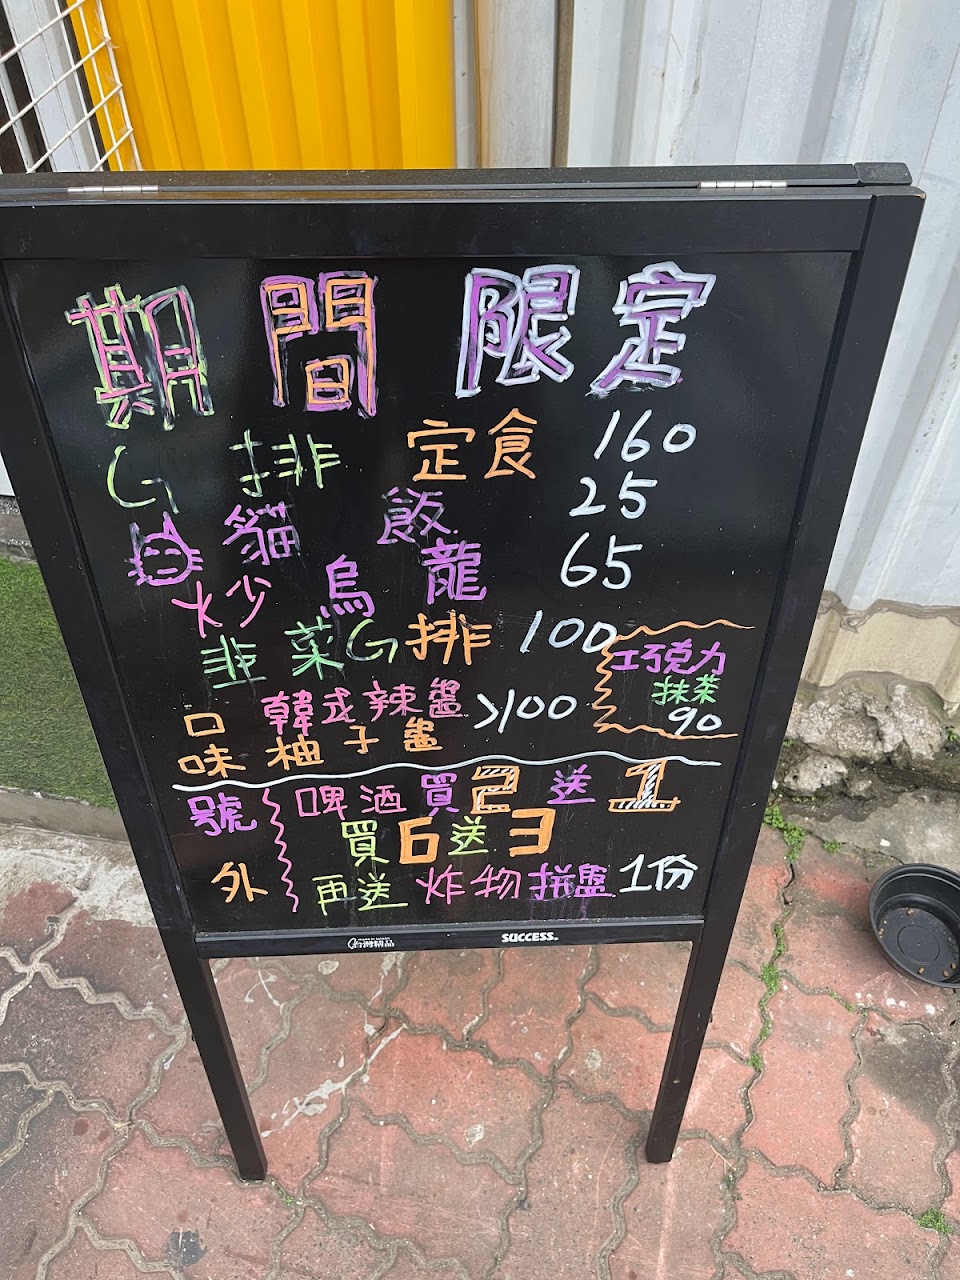 期間限定
G排 定食 160
貓 飯 25
炒 烏龍 65
韭菜G排 100
口味 韓式辣醬 柚子醬 >100
巧克力
抹茶
90
號外
啤酒買2送1
買6送3
再送炸物拼盤1份
SUCCESS